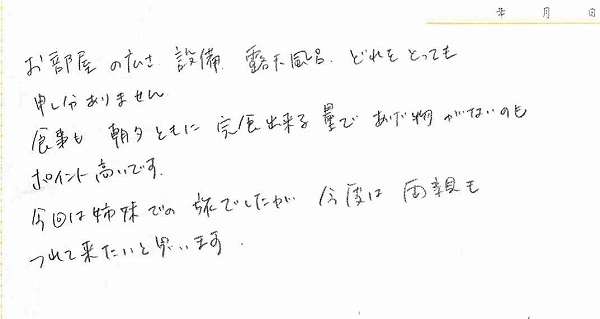 年 月 日
お部屋の広さ 設備 露天風呂 どれをとっても
申し分ありません
食事も 朝夕ともに 完食出来る量で あげ物がないのも
ポイント高いです.
今回は姉妹での旅でしたが 今度は両親も
つれて来たいと思います.